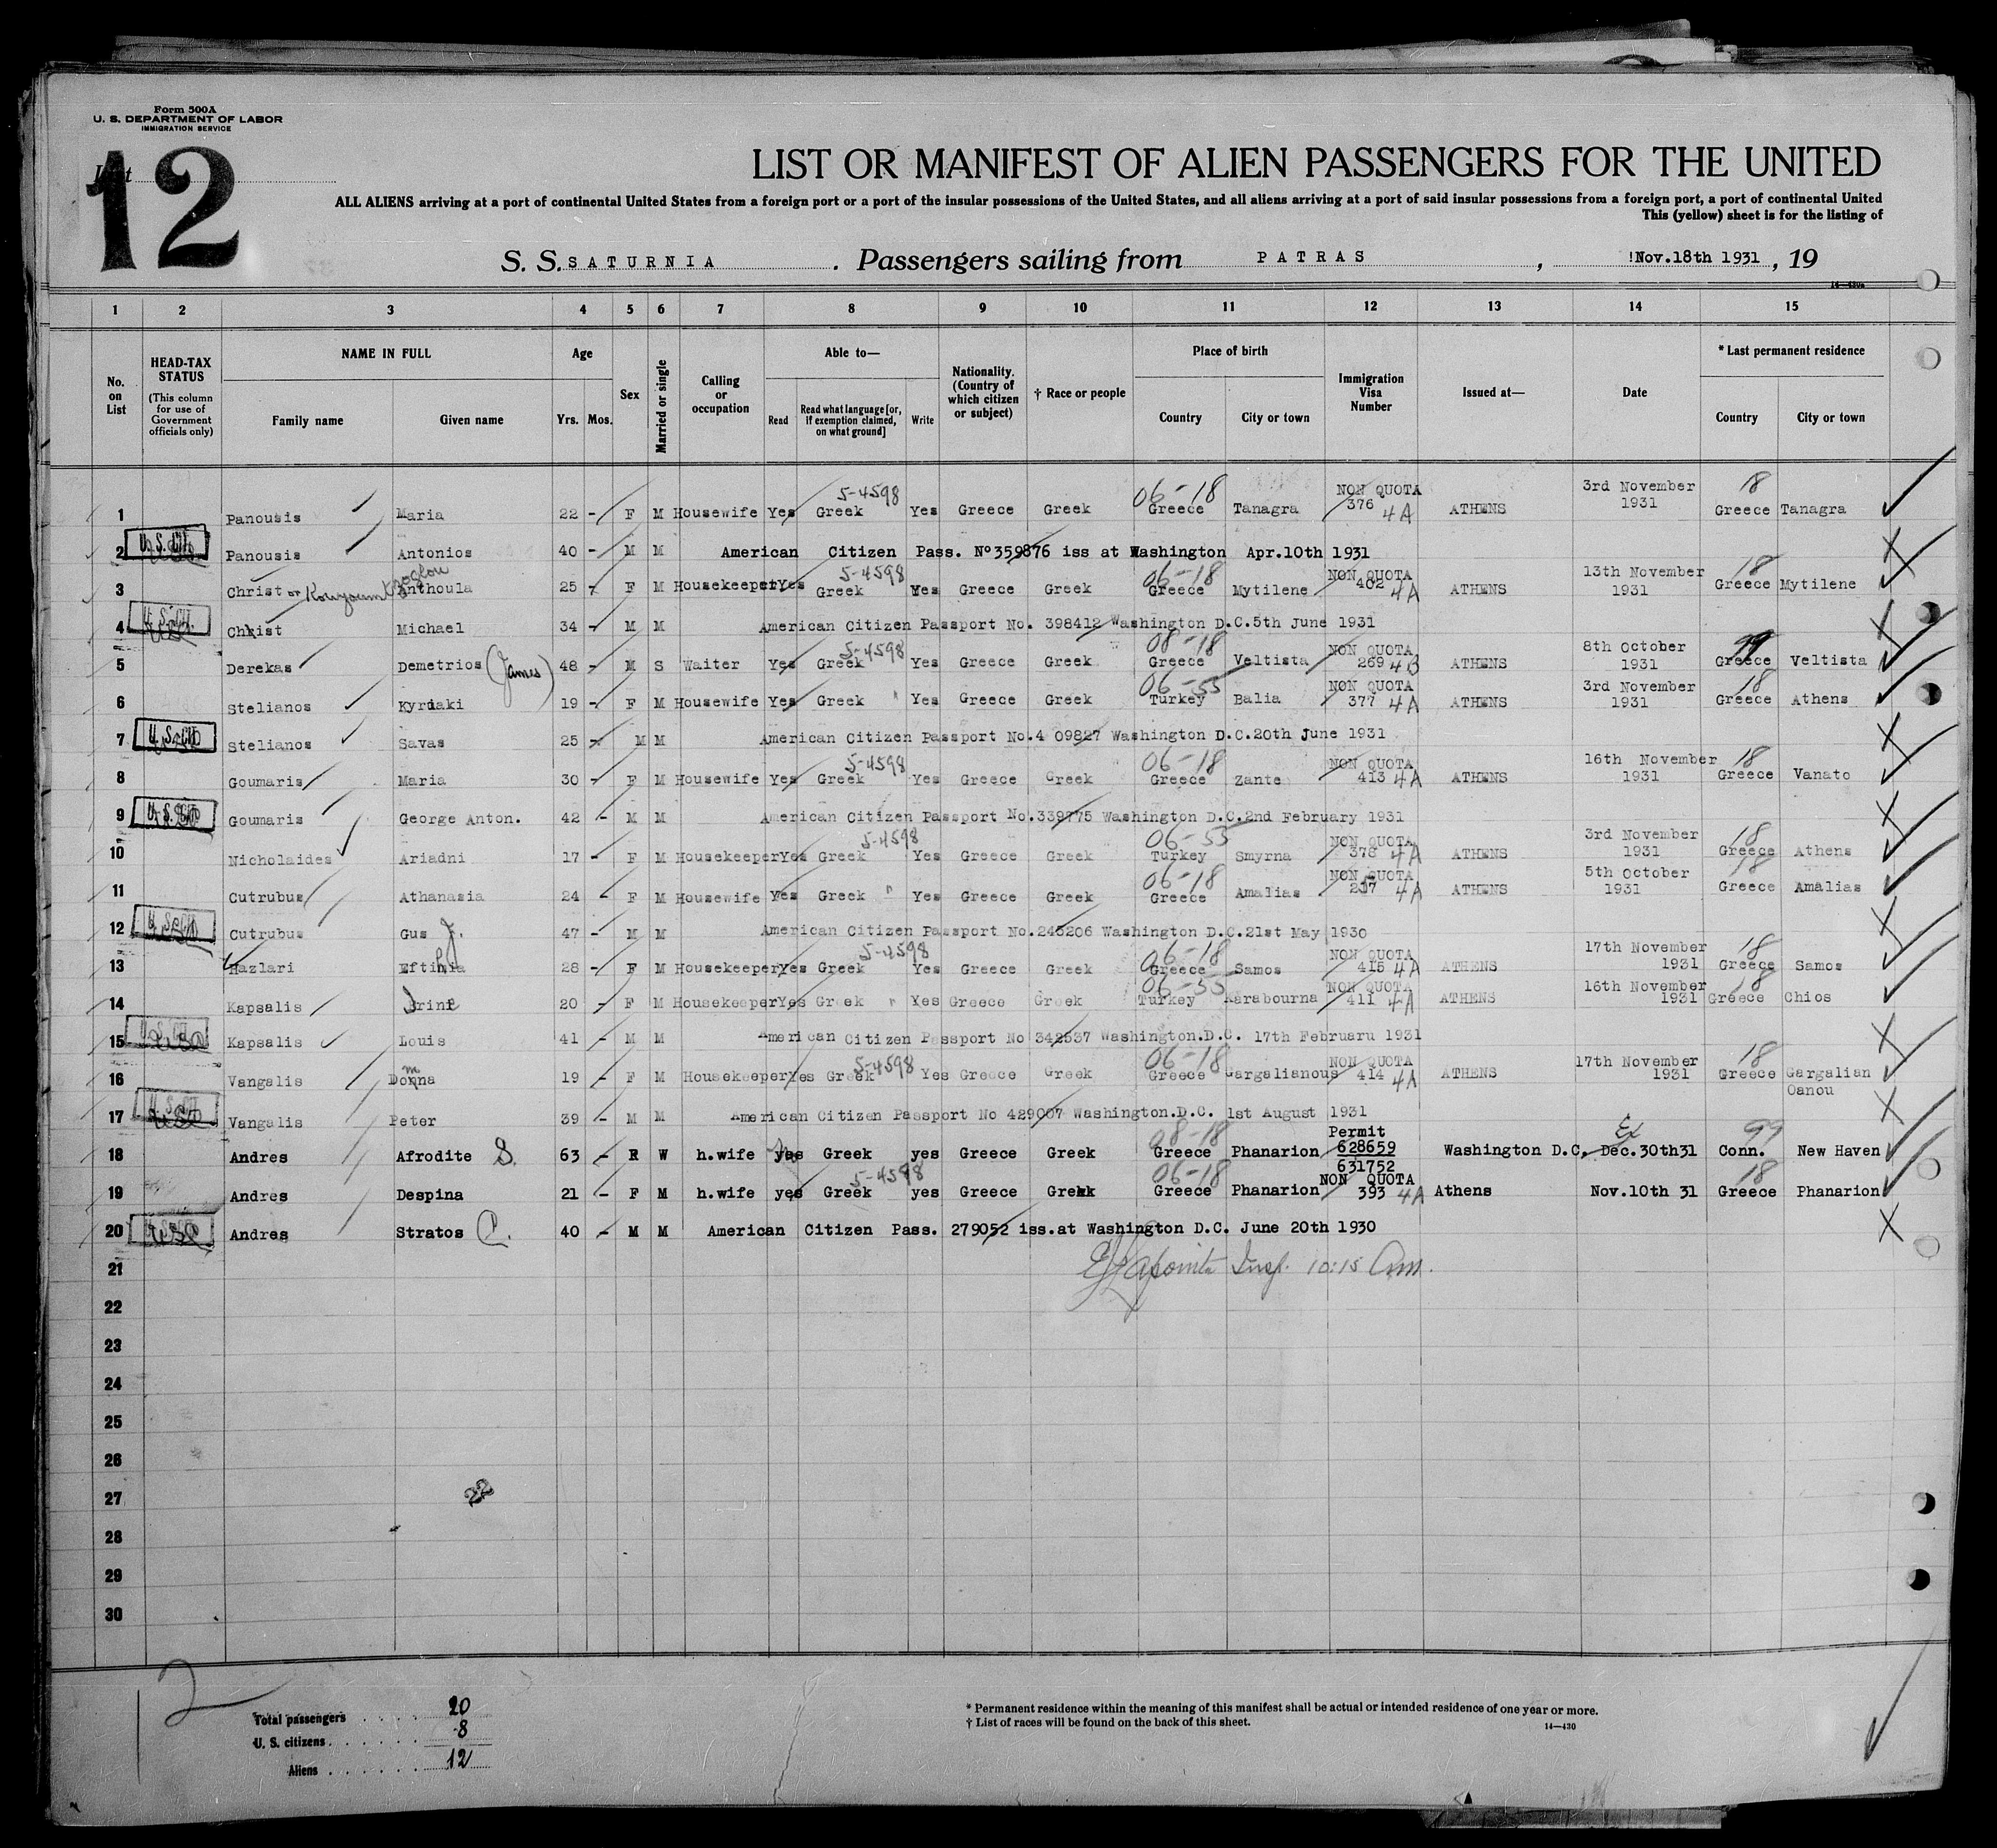 Form 500A
U. S. DEPARTMENT OF LABOR
IMMIGRATION SERVICE
List 12
LIST OR MANIFEST OF ALIEN PASSENGERS FOR THE UNITED
ALL ALIENS arriving at a port of continental United States from a foreign port or a port of the insular possessions of the United States, and all aliens arriving at a port of said insular possessions from a foreign port, a port of continental United
This (yellow) sheet is for the listing of
S. S. SATURNIA . Passengers sailing from PATRAS , Nov.18th 1931 , 19
14—430a
1 2 3 4 5 6 7 8 9 10 11 12 13 14 15
No. on List
HEAD-TAX STATUS (This column for use of Government officials only)
NAME IN FULL Family name Given name
Age Yrs. Mos.
Sex
Married or single
Calling or occupation
Able to— Read Read what language [or, if exemption claimed, on what ground] Write
Nationality. (Country of which citizen or subject)
† Race or people
Place of birth Country City or town
Immigration Visa Number
Issued at—
Date
* Last permanent residence Country City or town
1 Panousis Maria 22 - F M Housewife Yes Greek 5-4598 Yes Greece Greek 06-18 Greece Tanagra NON QUOTA 376 4A ATHENS 3rd November 1931 18 Greece Tanagra
2 U.S. CIT Panousis Antonios 40 - M M American Citizen Pass. Nº359876 iss at Washington Apr.10th 1931
3 Christ or Anthoula 25 - F M Housekeeper Yes Greek 5-4598 Yes Greece Greek 06-18 Greece Mytilene NON QUOTA 402 4A ATHENS 13th November 1931 18 Greece Mytilene
4 U.S. CIT. Christ Michael 34 - M M American Citizen Passport No. 398412 Washington D.C.5th June 1931
5 Derekas Demetrios (James) 48 - M S Waiter Yes Greek 5-4598 Yes Greece Greek 08-18 Greece Veltista NON QUOTA 269 4B ATHENS 8th October 1931 99 Greece Veltista
6 Stelianos Kyriaki 19 - F M Housewife Yes Greek " Yes Greece Greek 06-55 Turkey Balia NON QUOTA 377 4A ATHENS 3rd November 1931 18 Greece Athens
7 Stelianos Savas 25 - M M American Citizen Passport No.4 09827 Washington D.C.20th June 1931
8 Goumaris Maria 30 - F M Housewife Yes Greek 5-4598 Yes Greece Greek 06-18 Greece Zante NON QUOTA 413 4A ATHENS 16th November 1931 18 Greece Vanato
9 Goumaris George Anton. 42 - M M American Citizen Passport No.339775 Washington D.C.2nd February 1931
10 Nicholaides Ariadni 17 - F M Housekeeper Yes Greek 5-4598 Yes Greece Greek 06-55 Turkey Smyrna NON QUOTA 378 4A ATHENS 3rd November 1931 18 Greece Athens
11 Cutrubus Athanasia 24 - F M Housewife Yes Greek " Yes Greece Greek 06-18 Greece Amalias NON QUOTA 237 4A ATHENS 5th October 1931 18 Greece Amalias
12 Cutrubus Gus J. 47 - M M American Citizen Passport No.245206 Washington D.C.21st May 1930
13 Hazlari Eftihia 28 - F M Housekeeper Yes Greek 5-4598 Yes Greece Greek 06-18 Greece Samos NON QUOTA 415 4A ATHENS 17th November 1931 18 Greece Samos
14 Kapsalis Irini 20 - F M Housekeeper Yes Greek " Yes Greece Greek 06-55 Turkey Karabourna NON QUOTA 411 4A ATHENS 16th November 1931 18 Greece Chios
15 Kapsalis Louis 41 - M M American Citizen Passport No 342537 Washington.D.C. 17th Februaru 1931
16 Vangalis Domna 19 - F M Housekeeper Yes Greek 5-4598 Yes Greece Greek 06-18 Greece Gargalianous NON QUOTA 414 4A ATHENS 17th November 1931 18 Greece Gargalian Oanou
17 Vangalis Peter 39 - M M American Citizen Passport No 429007 Washington.D.C. 1st August 1931
18 Andres Afrodite S. 63 - F W h.wife yes Greek yes Greece Greek 08-18 Greece Phanarion Permit 628659 631752 Washington D.C. Ex Dec.30th31 99 Conn. New Haven
19 Andres Despina 21 - F M h.wife yes Greek 5-4598 yes Greece Greek 06-18 Greece Phanarion NON QUOTA 393 4A Athens Nov.10th 31 18 Greece Phanarion
20 Andres Stratos C. 40 - M M American Citizen Pass. 279052 iss.at Washington D.C. June 20th 1930
21 Insp. 10:15 Am.
22
23
24
25
26
27
28
29
30
Total passengers 20
U. S. citizens 8
Aliens 12
* Permanent residence within the meaning of this manifest shall be actual or intended residence of one year or more.
† List of races will be found on the back of this sheet.
14—430